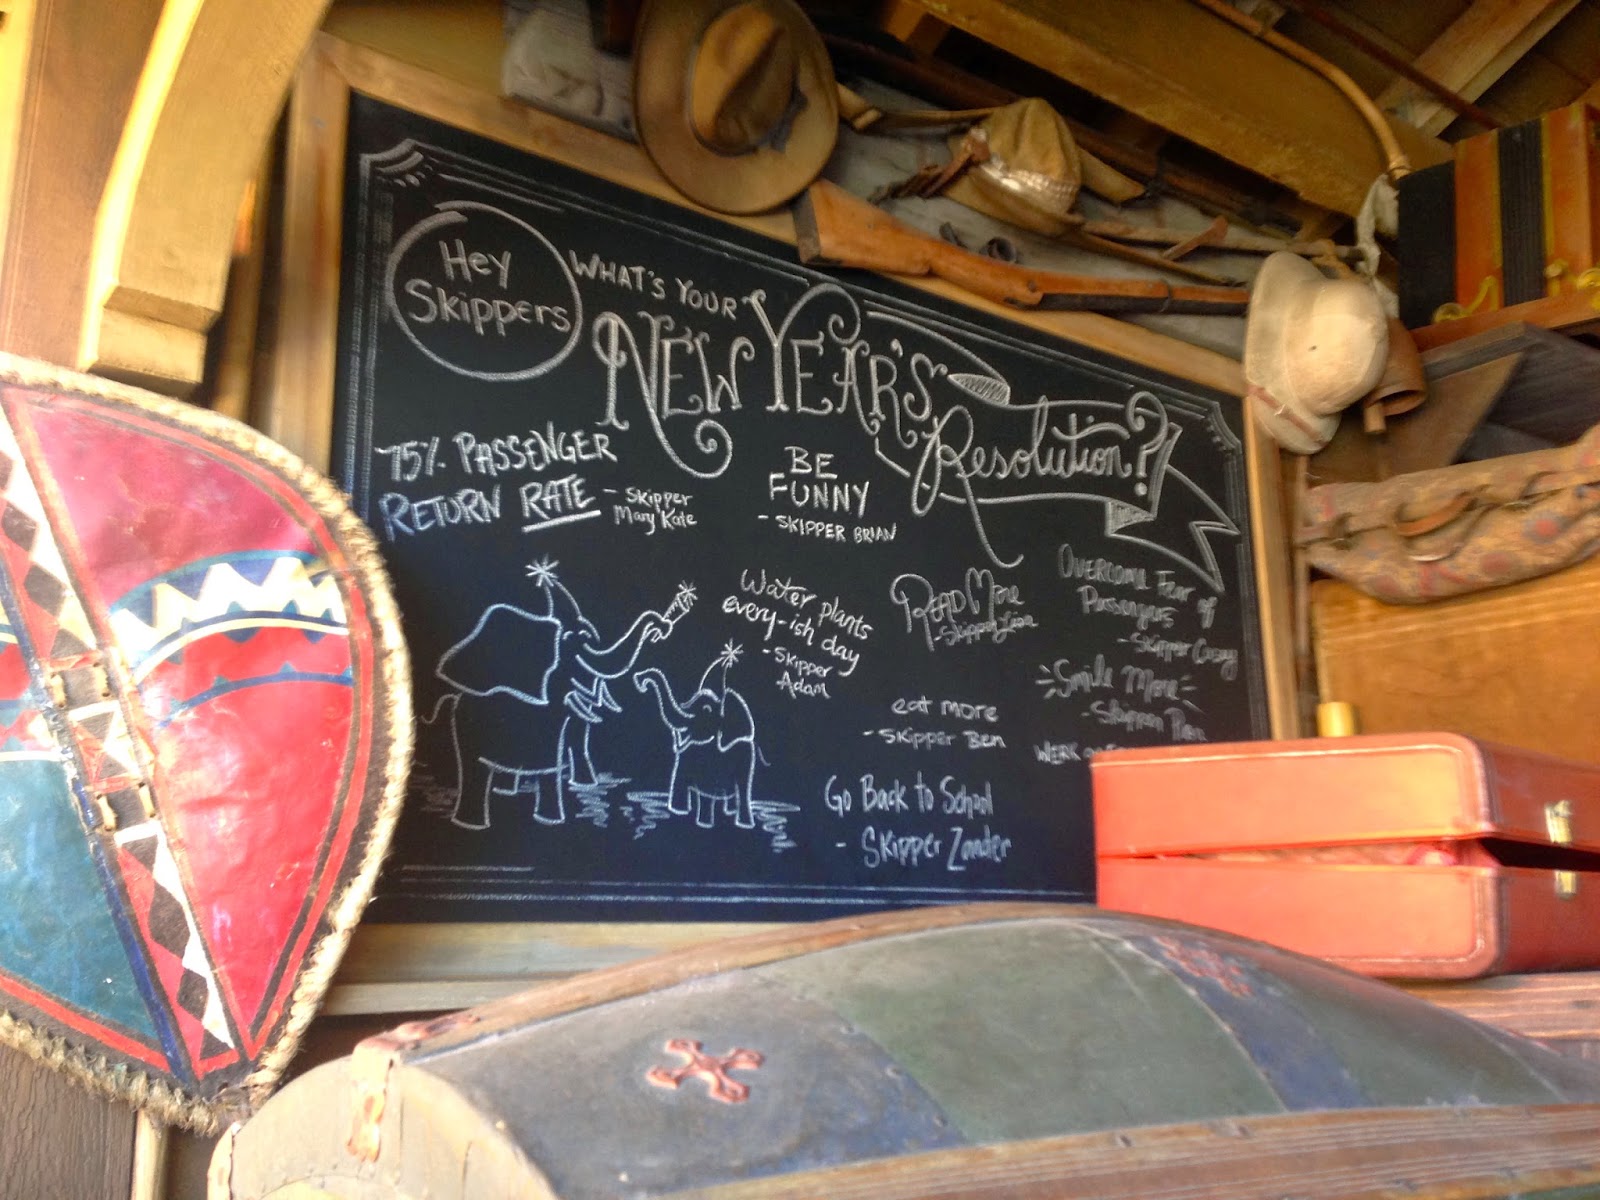 Hey
Skippers
WHAT'S YOUR
NEW YEAR'S
Resolution?
75% PASSENGER
RETURN RATE - Skipper
Mary Kate
BE
FUNNY
- SKIPPER BRIAN
Water plants
every-ish day
- Skipper
Adam
READ More
- Skipper Lisa
Overcome Fear of
Passengers
- Skipper Casey
Smile More
- Skipper
eat more
- Skipper Ben
WERK
Go Back to School
- Skipper Zander